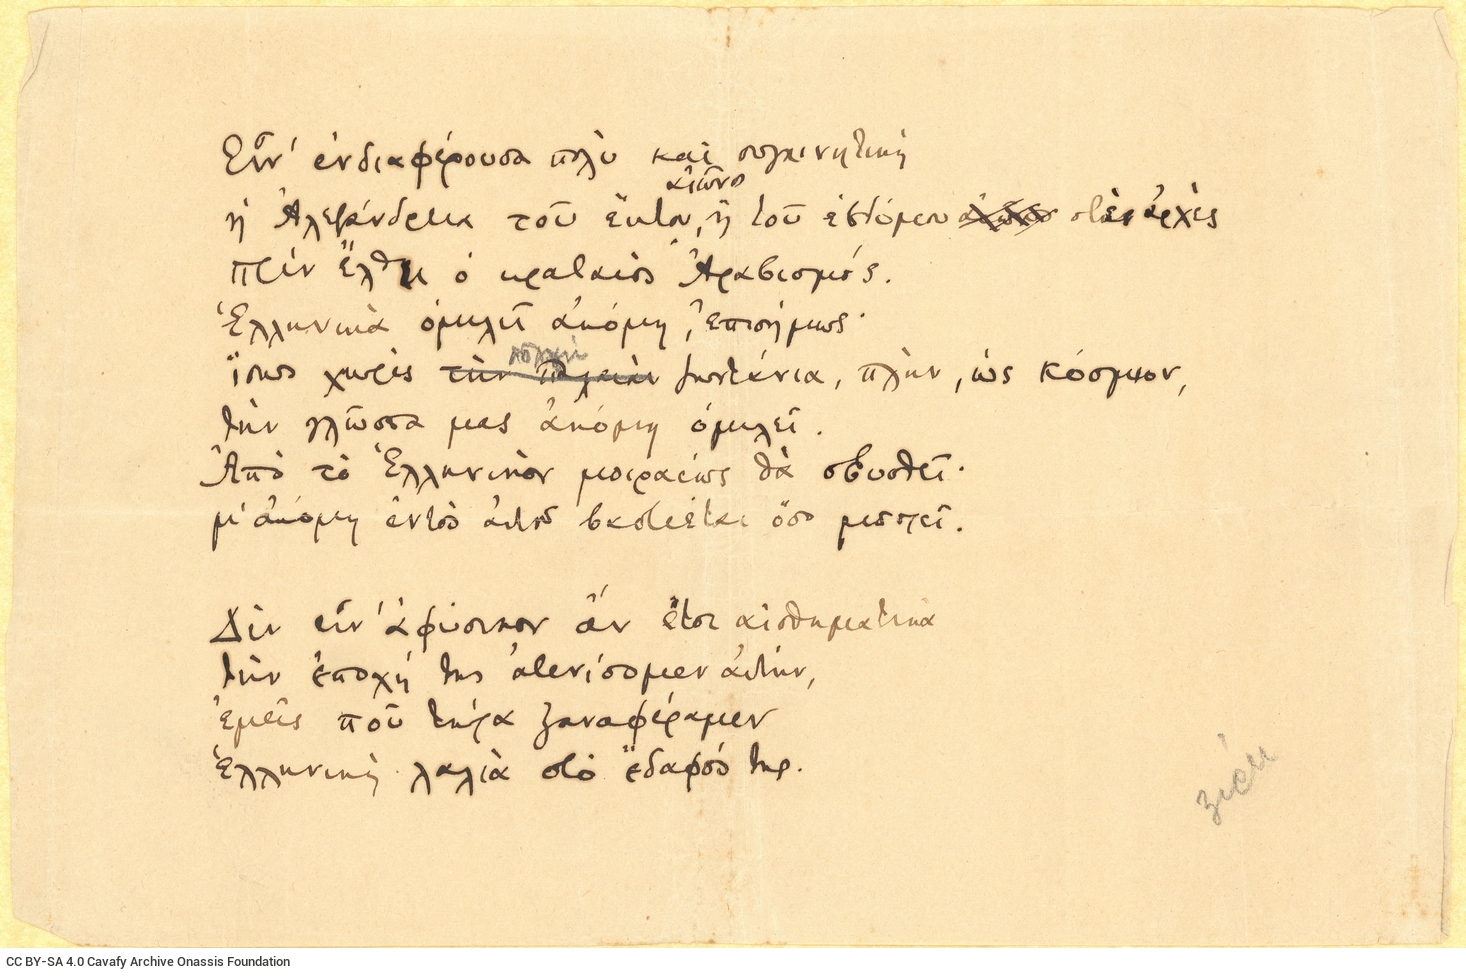 Εἶν' ἐνδιαφέρουσα πολὺ καὶ συγκινητικὴ
αἰῶνος
ἡ Ἀλεξάνδρεια τοῦ ἕκτου, ἢ τοῦ ἑβδόμου αἰῶνος στὲς ἀρχὲς
πρὶν ἔλθει ὁ κραταιὸς Ἀραβισμός.
Ἑλληνικὰ ὁμιλεῖ ἀκόμη, ἐπισήμως·
πολλὴ
ἴσως χωρὶς τὴν παλαιὰν ζωντάνια, πλὴν, ὡς κόσμιον,
τὴν γλῶσσα μας ἀκόμη ὁμιλεῖ.
Ἀπὸ τὸ Ἑλληνικὸν μοιραίως θὰ σβυσθεῖ·
μ' ἀκόμη ἐντὸς αὐτοῦ βαστιέται ὅσο μπορεῖ.
Δὲν εἶν' ἀφύσικον ἂν ἔτσι αἰσθηματικὰ
τὴν ἐποχή της ἀτενίσομεν αὐτήν,
ἐμεῖς ποῦ τώρα ξαναφέραμεν
ἑλληνικὴ λαλιὰ στὸ ἔδαφός της.
CC BY-SA 4.0 Cavafy Archive Onassis Foundation